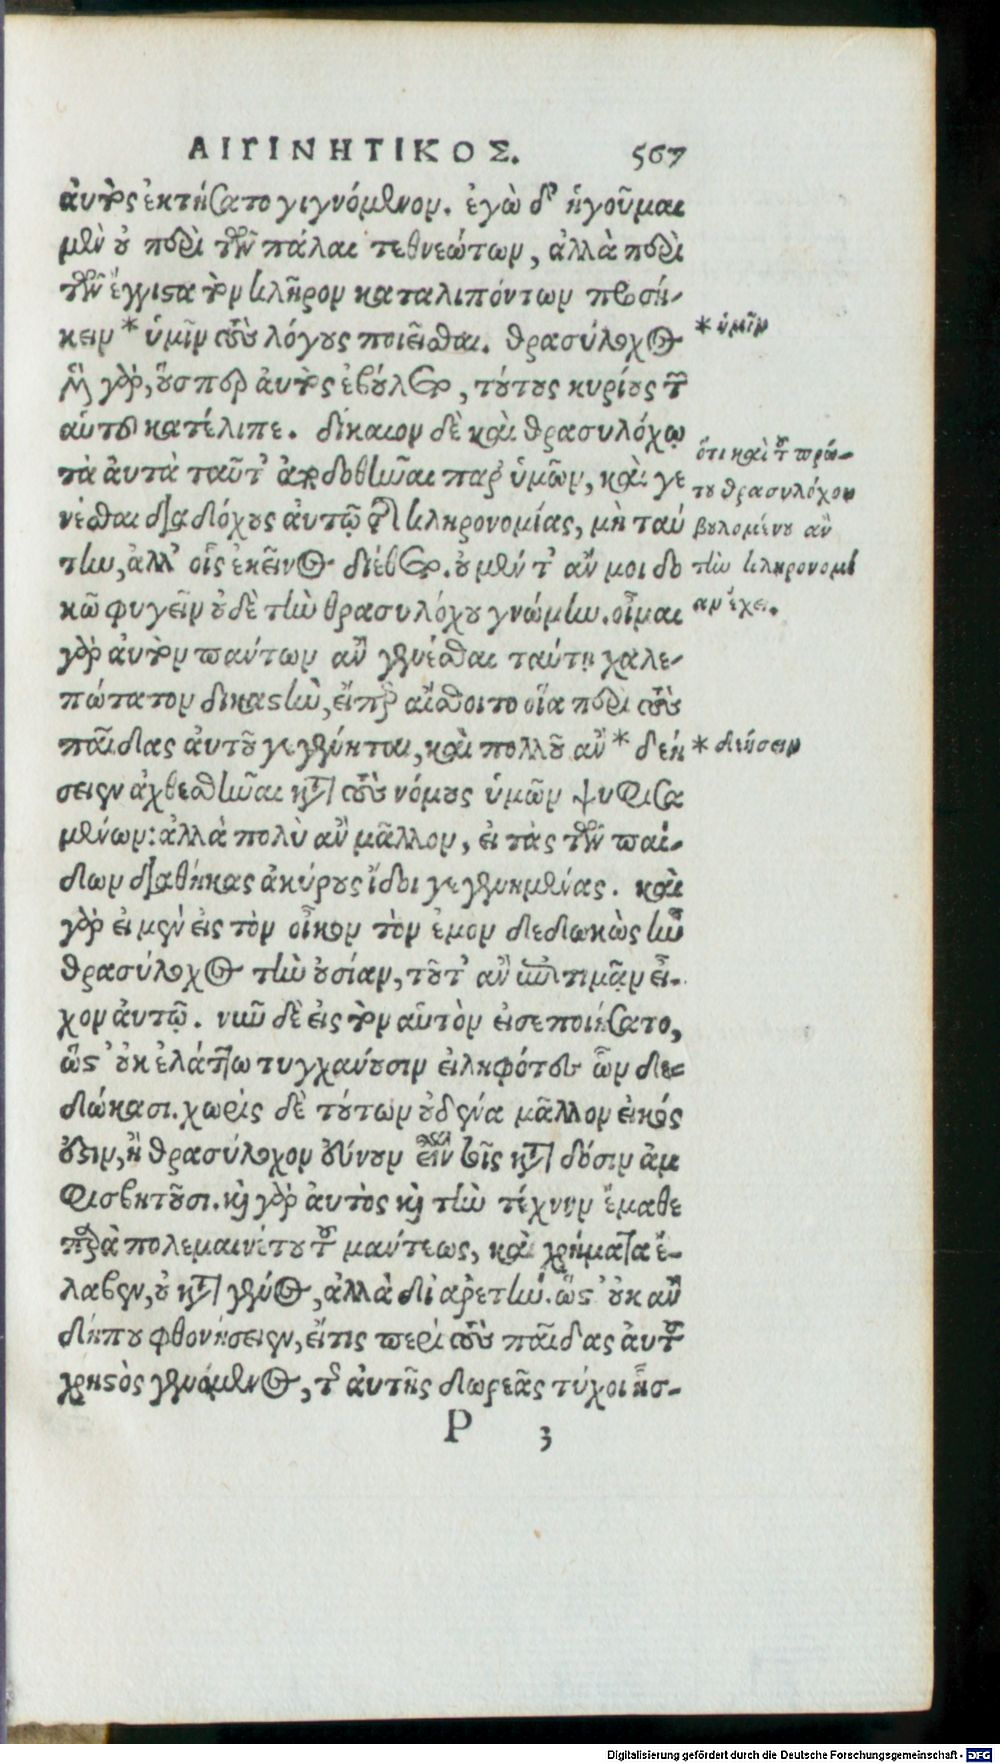 ΑΙΓΙΝΗΤΙΚΟΣ. 567
αὐτὸς ἐκτήσατο γιγνόμενον. ἐγὼ δ' ἡγοῦμαι
μὲν οὐ περὶ τῶν πάλαι τεθνεώτων, ἀλλὰ περὶ
τῶν ἔγγιστα τὸν κλῆρον καταλιπόντων προσή-
κειν * ὑμῖν τοὺς λόγους ποιεῖσθαι. θρασύλοχος
* ὑμῖν
μὲν γὰρ, οὕσπερ αὐτὸς ἐβούλετο, τούτους κυρίους τῶν
αὑτοῦ κατέλιπε. δίκαιον δὲ καὶ θρασυλόχῳ
τὰ αὐτὰ ταῦτ' ἀποδοθῆναι παρ' ὑμῶν, καὶ γε
νέσθαι διαδόχους αὐτῷ τῆς κληρονομίας, μὴ ταύ
την, ἀλλ' οἷς ἐκεῖνος διέθετο. οὐ μέντ' ἄν μοι δο
κῶ φυγεῖν οὐδὲ τὴν θρασυλόχου γνώμην. οἶμαι
ὅτι καὶ τοῦ πρώ-
του θρασυλόχου
βουλομένου ἂν
τὴν κληρονομί
αν ἔχει.
γὰρ αὐτὸν πάντων ἂν γενέσθαι ταύτῃ χαλε-
πώτατον δικαστὴν, εἴπερ αἴσθοιτο οἵα περὶ τοὺς
παῖδας αὐτοῦ γεγένηται, καὶ πολλοῦ ἂν * δεή
* διήσειν
σειεν ἀχθεσθῆναι κατὰ τοὺς νόμους ὑμῶν ψηφισα
μένων: ἀλλὰ πολὺ ἂν μᾶλλον, εἰ τὰς τῶν παί-
δων διαθήκας ἀκύρους ἴδοι γεγενημένας. καὶ
γὰρ εἰ μὲν εἰς τὸν οἶκον τὸν ἐμὸν δεδωκὼς ἦν
θρασύλοχος τὴν οὐσίαν, τοῦτ' ἂν ἐπιτιμᾷν εἶ-
χον αὐτῷ. νῦν δὲ εἰς τὸν αὑτὸν εἰσεποιήσατο,
ὥστ' οὐκ ἐλάττω τυγχάνουσιν εἰληφότες ὧν δε-
δώκασι. χωρὶς δὲ τούτων οὐδένα μᾶλλον εἰκός
ἐστιν, ἢ θρασύλοχον εὔνουν εἶναι τοῖς κατὰ δόσιν ἀμ
φισβητοῦσι. καὶ γὰρ αὐτὸς καὶ τὴν τέχνην ἔμαθε
παρὰ πολεμαινέτου τοῦ μάντεως, καὶ χρήματα ἔ-
λαβεν, οὐ κατὰ γένος, ἀλλὰ δι' ἀρετήν. ὥστ' οὐκ ἂν
δήπου φθονήσειεν, εἴ τις περὶ τοὺς παῖδας αὐτοῦ
χρηστὸς γενόμενος, τῆς αὐτῆς δωρεᾶς τύχοι ἧσ-
P 3
Digitalisierung gefördert durch die Deutsche Forschungsgemeinschaft - DFG